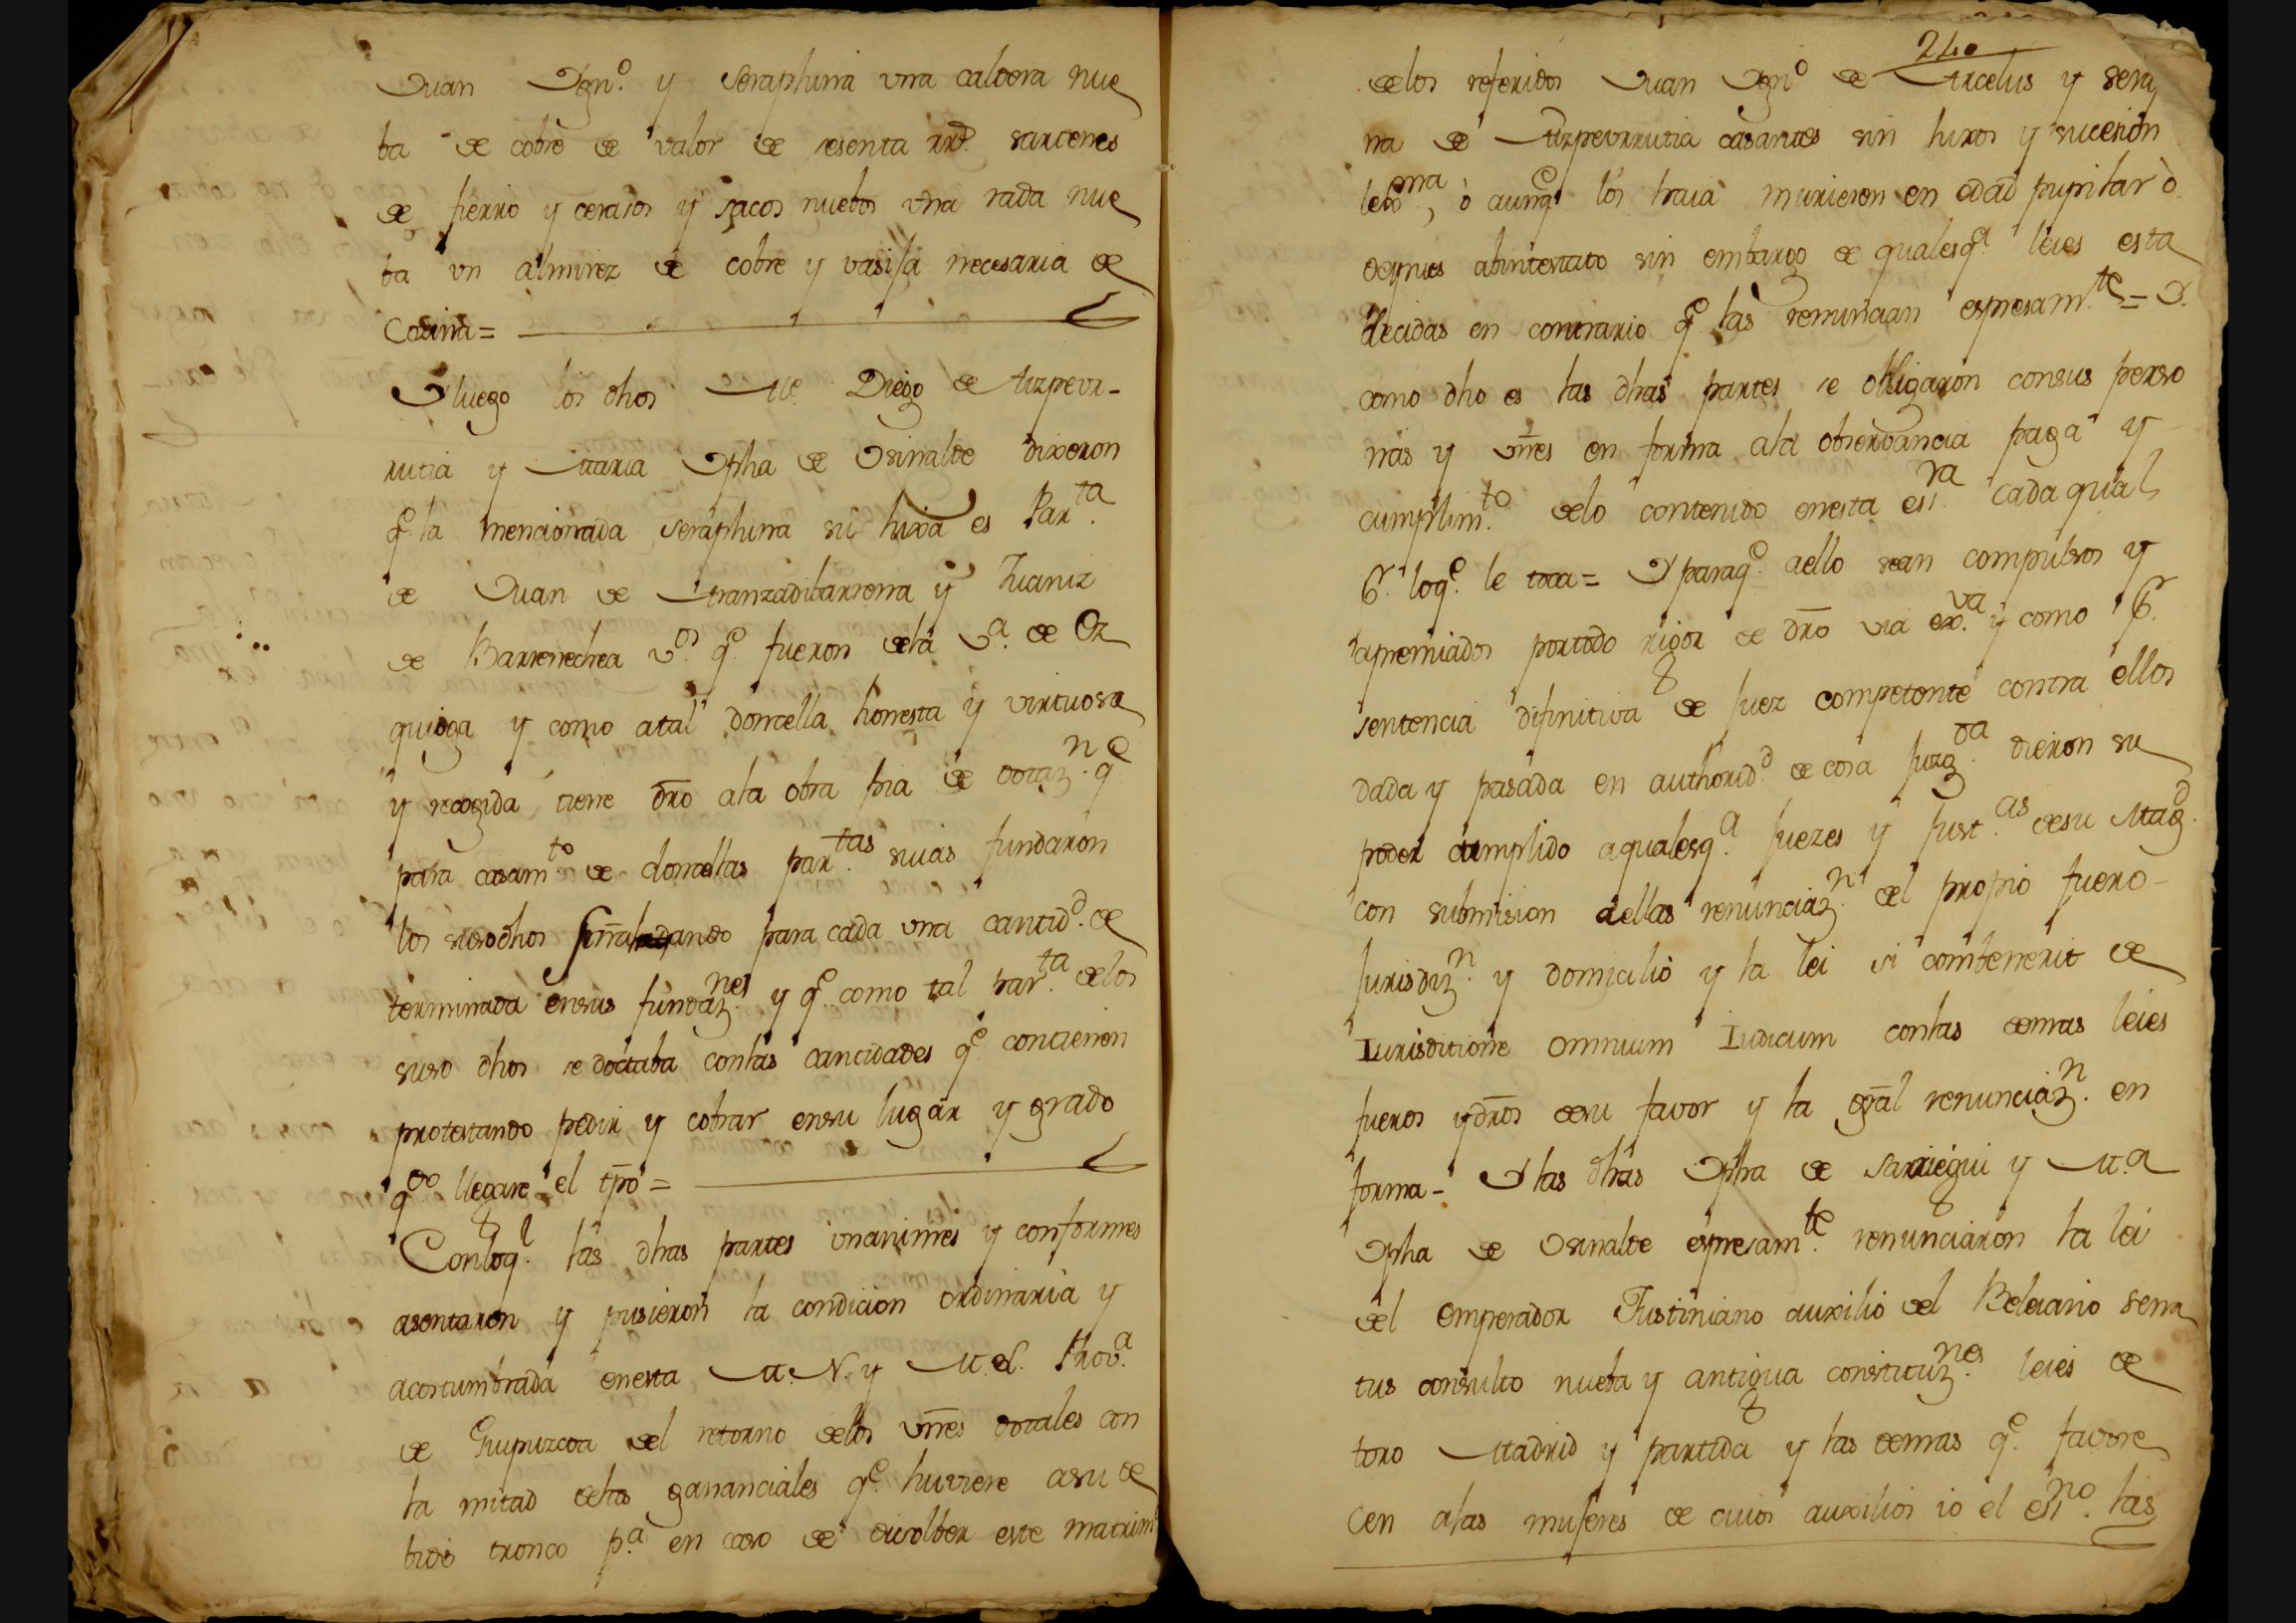 Juan Ign.o y Seraphina vna caldera nue
ba de cobre de valor de sesenta rr.s sartenes
de fierro y cerasos y sacos nuebos vna rada nue
ba vn almirez de cobre y vasija necesaria de
Cocina=
Y luego los dhos Me. Diego de Aizpeur-
rutia y Maria Ipha de Osinalde dixeron
q.e la mencionada Seraphina su hixa es Par.ta
de Juan de Aranzadibarrena y Juaniz
de Barrenechea v.os q.e fueron dela v.a de Oz
quidga y como atal doncella honesta y virtuosa
y recogida tiene dro ala obra pia de dotaz.n q.e
para casam.to de doncellas par.tas suias fundaron
los susodhos señalando para cada vna cantid.d de
terminada ensus fundaz.nes y q.e como tal par.ta delos
suso dhos se dottaba conlas cantidades q.e contienen
protestando pedir y cobrar ensu lugar y grado
q.do llegare el tpo=
Conloq.l las dhas partes vnanimes y conformes
asentaron y pusieron la condicion ordinaria y
acostumbrada enesta M. N. y M. L. Prov.a
de Guipuzcoa del retorno delos vnes dotales con
la mitad delas gananciales q.e huviere asu de
bido tronco p.a en caso de disolber este matrim
240
delos referidos Juan Ign.o de Arcelus y Sera
na de Aizpeurrutia casantes sin hixos y sucesion
lexma, ò aunq.e los haia murieren en edad pupilar ò
despues abintestato sin embargo de qualesq.a leies esta
blecidas en contrario q.e las renuncian espresam.te= Y
como dho es las dhas partes se obligaron consus perso
nas y vnes en forma ala observancia paga y
cumplim.to delo contenido enesta ess.ra cada qual
P.r loq.e le toca= Y paraq.e aello sean compulsos y
apremiados portodo rigor de dro via ex.va y como P.r
sentencia difinitiva de juez competente contra ellos
dada y pasada en authorid.d de cosa juzg.da dieron su
poder cumplido aqualesq.a juezes y just.as desu Mag.d
con submision aellas renunciaz.n del propio fuero-
Jurisdiz.n y domicilio y la lei si combenerit de
Iurisditione omnium Iudicum conlas demas leies
fueros y dros desu favor y la gral renunciaz.n en
forma- Y las dhas Ipha de Sarriegui y M.a
Ipha de Osinalde espresam.te renunciaron la lei
del emperador Justiniano auxilio del Beleiano sena
tus consulto nueba y antigua constituz.nes leies de
toro Madrid y partida y las demas q.e favore
cen alas mujeres de cuios auxilios io el ess.no las